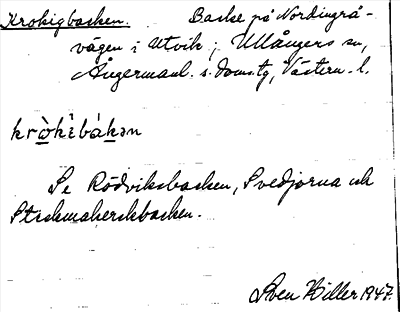 Krokigbacken. Backe på Nordingrå-
vägen i Utvik, Ullångers sn,
Ångermanl. s. domsg, Västern. l.
krò̠kìbák̠ən
Se Rödviksbacken, Svedjorna och
Stickmakerskbacken.
Sven Hiller 1947.